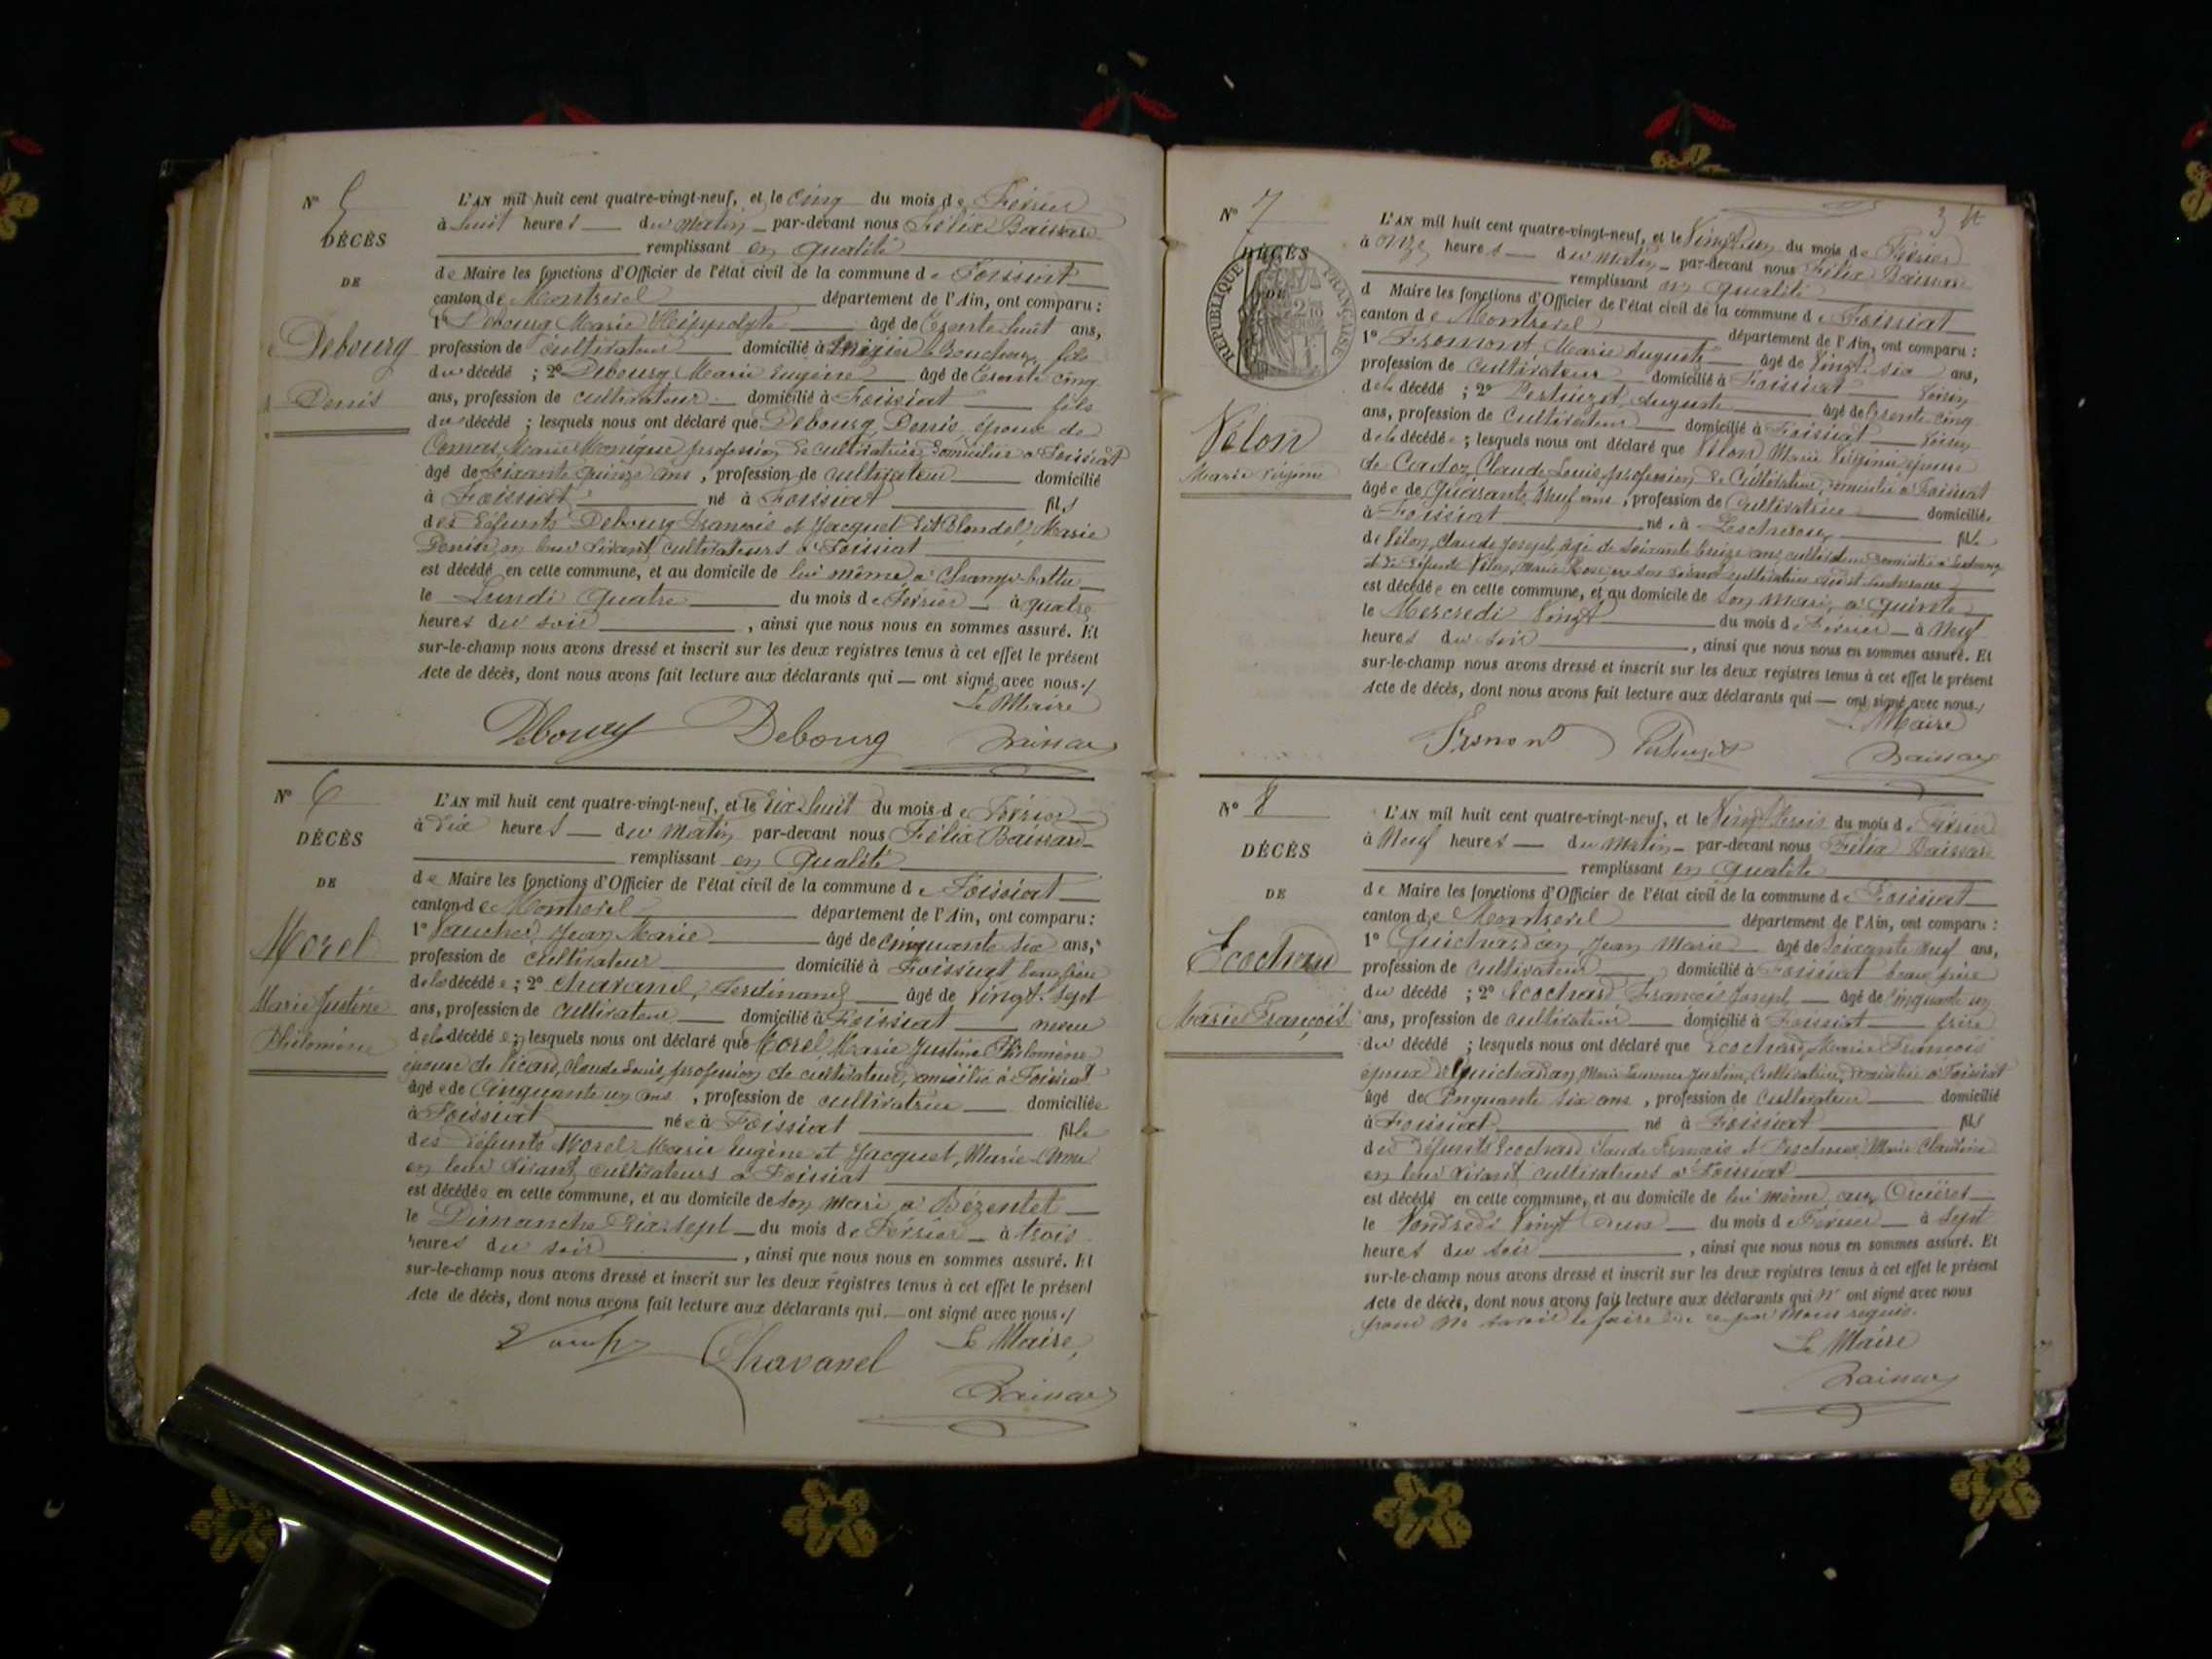 N° 5
DÉCÈS
DE
Debourg
Denis
L'AN mil huit cent quatre-vingt-neuf, et le cinq du mois de Février
à huit heures du matin par-devant nous Félix Baissard
remplissant en qualité
de Maire les fonctions d'Officier de l'état civil de la commune de Foissiat
canton de Montrevel département de l'Ain, ont comparu :
1° Debourg Marie Hippolyte âgé de trente huit ans,
profession de cultivateur domicilié à fils
du décédé ; 2° Debourg Marie Eugène âgé de trente cinq
ans, profession de cultivateur domicilié à Foissiat fils
du décédé ; lesquels nous ont déclaré que Debourg, Denis, époux de
Comas, Marie Monique profession de cultivatrice, domiciliée à Foissiat
âgé de soixante quinze ans, profession de cultivateur domicilié
à Foissiat né à Foissiat fils
des défunts Debourg François et Jacquet dit Blondel, Marie
Denise, en leur vivant cultivateurs à Foissiat
est décédé en cette commune, et au domicile de lui même, à Champ-battu
le Lundi quatre du mois de Février à quatre
heures du soir, ainsi que nous nous en sommes assuré. Et
sur-le-champ nous avons dressé et inscrit sur les deux registres tenus à cet effet le présent
Acte de décès, dont nous avons fait lecture aux déclarants qui — ont signé avec nous./
Le Maire
Debourg Debourg Baissard
N° 6
DÉCÈS
DE
Morel
Marie Justine
Philomène
L'AN mil huit cent quatre-vingt-neuf, et le dix huit du mois de Février
à dix heures du matin par-devant nous Félix Baissard
remplissant en qualité
de Maire les fonctions d'Officier de l'état civil de la commune de Foissiat
canton de Montrevel département de l'Ain, ont comparu :
1° Vaucher, Jean Marie âgé de cinquante six ans,
profession de cultivateur domicilié à Foissiat beau frère
de la décédée ; 2° Chavanel, Ferdinand âgé de vingt-sept
ans, profession de cultivateur domicilié à Foissiat neveu
de la décédée ; lesquels nous ont déclaré que Morel, Marie Justine Philomène
épouse de Vicard, Claude Louis, profession de cultivateur, domicilié à Foissiat
âgée de cinquante un ans, profession de cultivatrice domiciliée
à Foissiat née à Foissiat fille
des défunts Morel Marie Eugène et Jacquet, Marie-Anne
en leur vivant, cultivateurs à Foissiat
est décédée en cette commune, et au domicile de son mari à Bézentet
le Dimanche dix-sept du mois de Février à trois
heures du soir, ainsi que nous nous en sommes assuré. Et
sur-le-champ nous avons dressé et inscrit sur les deux registres tenus à cet effet le présent
Acte de décès, dont nous avons fait lecture aux déclarants qui — ont signé avec nous./
Le Maire,
Chavanel
Baissard
N° 7
DÉCÈS
DE
RÉPUBLIQUE FRANÇAISE
Vélon
Marie Virginie
L'AN mil huit cent quatre-vingt-neuf, et le vingt un du mois de Février
à onze heures du matin par-devant nous Félix Baissard
remplissant en qualité
d Maire les fonctions d'Officier de l'état civil de la commune de Foissiat
canton de Montrevel département de l'Ain, ont comparu :
1° Fromont, Marie Auguste âgé de vingt six ans,
profession de cultivateur domicilié à Foissiat voisin
de la décédé ; 2° Pertuizet, Auguste âgé de trente cinq
ans, profession de cultivateur domicilié à Foissiat voisin
de la décédée ; lesquels nous ont déclaré que Vélon Marie Virginie, épouse
de Cardoz, Claude Louis, profession de cultivateur, domicilié à Foissiat
âgée de quarante neuf ans, profession de cultivatrice domiciliée
à Foissiat née à Lescheroux fille
de Vélon, Claude Joseph, âgé de soixante treize ans, cultivateur domicilié à Lescheroux
et de défunte Vélon, Marie Rose, en son vivant cultivatrice
est décédée en cette commune, et au domicile de son mari, à Quinte
le Mercredi vingt du mois de Février à neuf
heures du soir, ainsi que nous nous en sommes assuré. Et
sur-le-champ nous avons dressé et inscrit sur les deux registres tenus à cet effet le présent
Acte de décès, dont nous avons fait lecture aux déclarants qui — ont signé avec nous./
Le Maire
Fromont Pertuizet Baissard
N° 8
DÉCÈS
DE
Ecochard
Marie François
L'AN mil huit cent quatre-vingt-neuf, et le vingt trois du mois de Février
à neuf heures du matin par-devant nous Félix Baissard
remplissant en qualité
de Maire les fonctions d'Officier de l'état civil de la commune de Foissiat
canton de Montrevel département de l'Ain, ont comparu :
1° Guichardan, Jean Marie âgé de soixante neuf ans,
profession de cultivateur domicilié à Foissiat beau père
du décédé ; 2° Ecochard François Joseph âgé de cinquante un
ans, profession de cultivateur domicilié à Foissiat frère
du décédé ; lesquels nous ont déclaré que Ecochard, Marie François
époux de Guichardan, Marie Laurence Justine, cultivatrice, domiciliée à Foissiat
âgé de cinquante six ans, profession de cultivateur domicilié
à Foissiat né à Foissiat fils
des défunts Ecochard Claude François et Marie Claudine
en leur vivant, cultivateurs à Foissiat
est décédé en cette commune, et au domicile de lui même, aux
le Vendredi vingt deux du mois de Février à sept
heures du soir, ainsi que nous nous en sommes assuré. Et
sur-le-champ nous avons dressé et inscrit sur les deux registres tenus à cet effet le présent
Acte de décès, dont nous avons fait lecture aux déclarants qui n' ont signé avec nous
pour ne savoir le faire de ce par nous requis.
Le Maire
Baissard